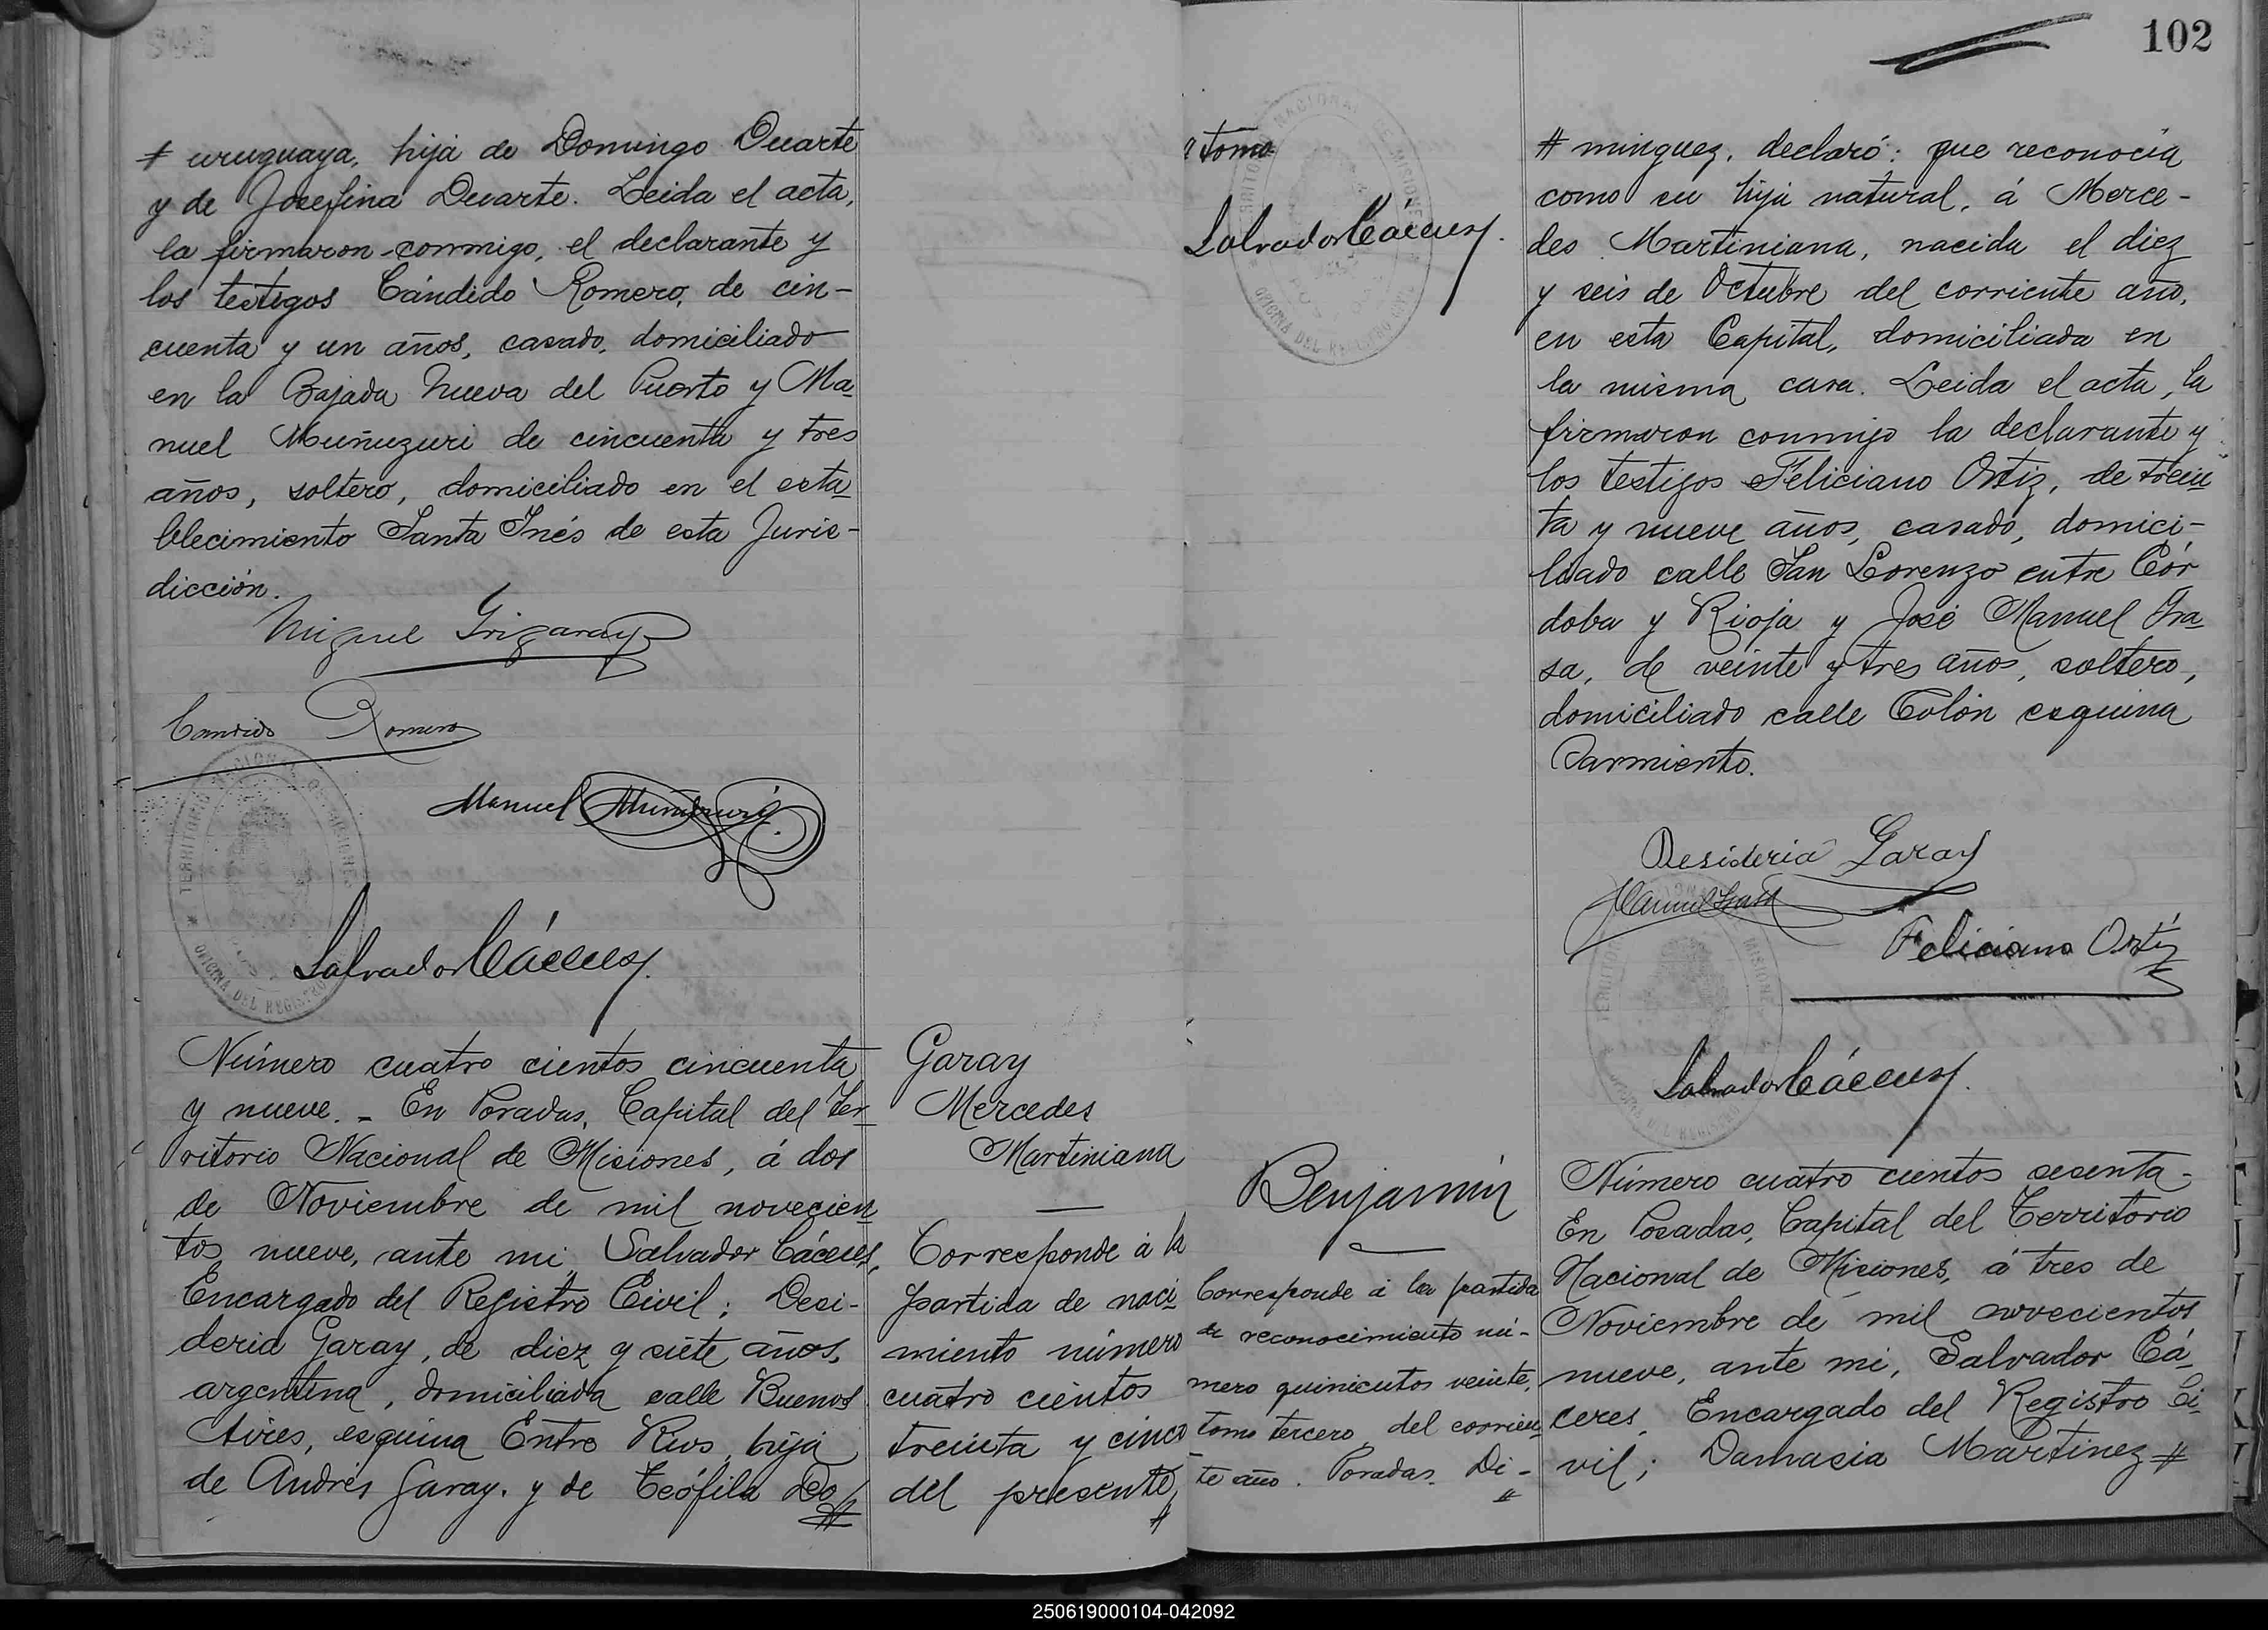 # uruguaya, hija de Domingo Duarte
y de Josefina Duarte. Leida el acta,
la firmaron conmigo, el declarante y
los testigos Cándido Romero, de cin-
cuenta y un años, casado, domiciliado
en la Bajada Nueva del Puerto y Ma
nuel Muñuzuri de cincuenta y tres
años, soltero, domiciliado en el esta
blecimiento Santa Inés de esta Juris-
dicción.
Miguel Irigaray
Candido Romero
Manuel Muñuzuri
Salvador Cáceres.
Número cuatro cientos cincuenta
y nueve. - En Posadas, Capital del Ter
ritorio Nacional de Misiones, á dos
de Noviembre de mil novecien
tos nueve, ante mi, Salvador Cáceres,
Encargado del Registro Civil; Desi-
deria Garay, de diez y siete años,
argentina, domiciliada calle Buenos
Aires, esquina Entre Rios, hija
de Andrés Garay, y de Teófila Do #
Garay
Mercedes
Martiniana
Corresponde á la
partida de naci
miento número
cuatro cientos
treinta y cinco
del presente
#
tomo
Salvador Cáceres.
Benjamin
Corresponde á la partida
de reconocimiento nú-
mero quinientos veinte,
tomo tercero del corrien
te año. Posadas, Di-
#
102
# minguez, declaró: que reconocía
como su hija natural, á Merce-
des Martiniana, nacida el diez
y seis de Octubre del corriente año,
en esta Capital, domiciliada en
la misma casa. Leida el acta, la
firmaron conmigo la declarante y
los testigos Feliciano Ortiz, de trein
ta y nueve años, casado, domici-
liado calle San Lorenzo entre Cór
doba y Rioja y José Manuel Ira
sa, de veinte y tres años, soltero,
domiciliado calle Colón esquina
Sarmiento.
Desideria Garay
Feliciano Ortiz
Salvador Cáceres.
Número cuatro cientos sesenta-
En Posadas, Capital del Territorio
Nacional de Misiones, á tres de
Noviembre de mil novecientos
nueve, ante mi, Salvador Cá
ceres, Encargado del Registro Ci
vil; Damasia Martinez #
TERRITORIO NACIONAL DE MISIONES
OFICINA DEL REGISTRO CIVIL
250619000104-042092